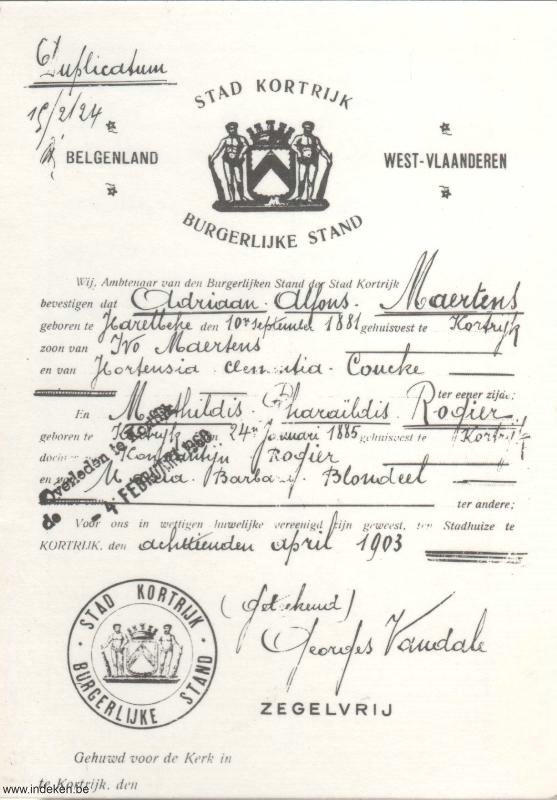 Duplicatum
19/2/24
STAD KORTRIJK
BELGENLAND
WEST-VLAANDEREN
BURGERLIJKE STAND
Wij, Ambtenaar van den Burgerlijken Stand der Stad Kortrijk
bevestigen dat Adriaan Alfons Maertens
geboren te Harelbeke den 10n september 1881 gehuisvest te Kortrijk
zoon van Ivo Maertens
en van Hortensia Clementia Coucke
ter eener zijde;
En Mathildis Pharaïldis Rogier
geboren te Kortrijk den 24n Januari 1885 gehuisvest te Kortrijk
dochter Konstantijn Rogier
en van Barbara Blondeel
Overleden te Kortrijk
de - 4 FEBRUARI 1960
ter andere;
Voor ons in wettigen huwelijke vereenigd zijn geweest, ten Stadhuize te
KORTRIJK, den achttienden april 1903
STAD KORTRIJK
BURGERLIJKE STAND
(Geteekend)
Georges Vandale
ZEGELVRIJ
Gehuwd voor de Kerk in
te Kortrijk, den
www.indeken.be